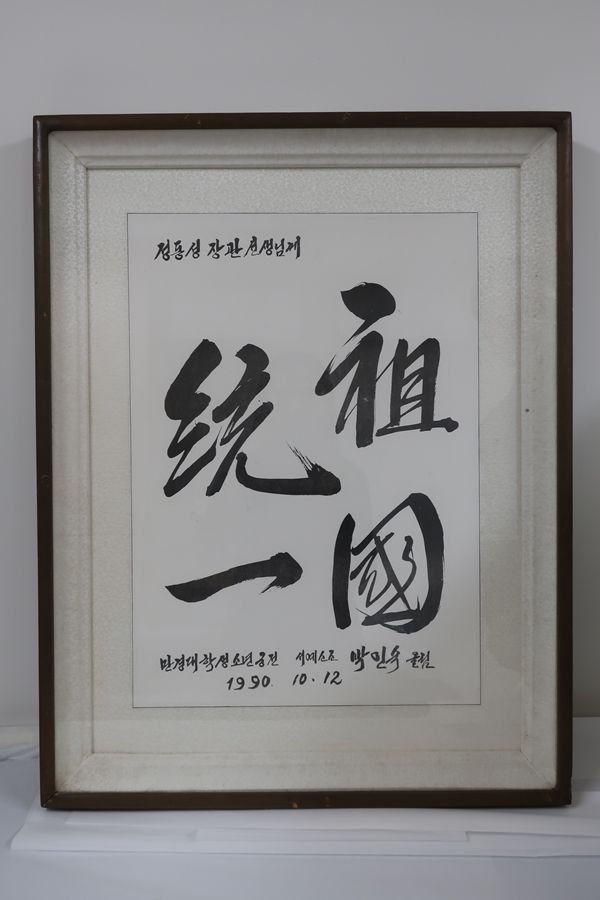 정동성 장관 선생님께
祖國
統一
만경대학생소년궁전 서예소조 박민수 올림
1990. 10. 12